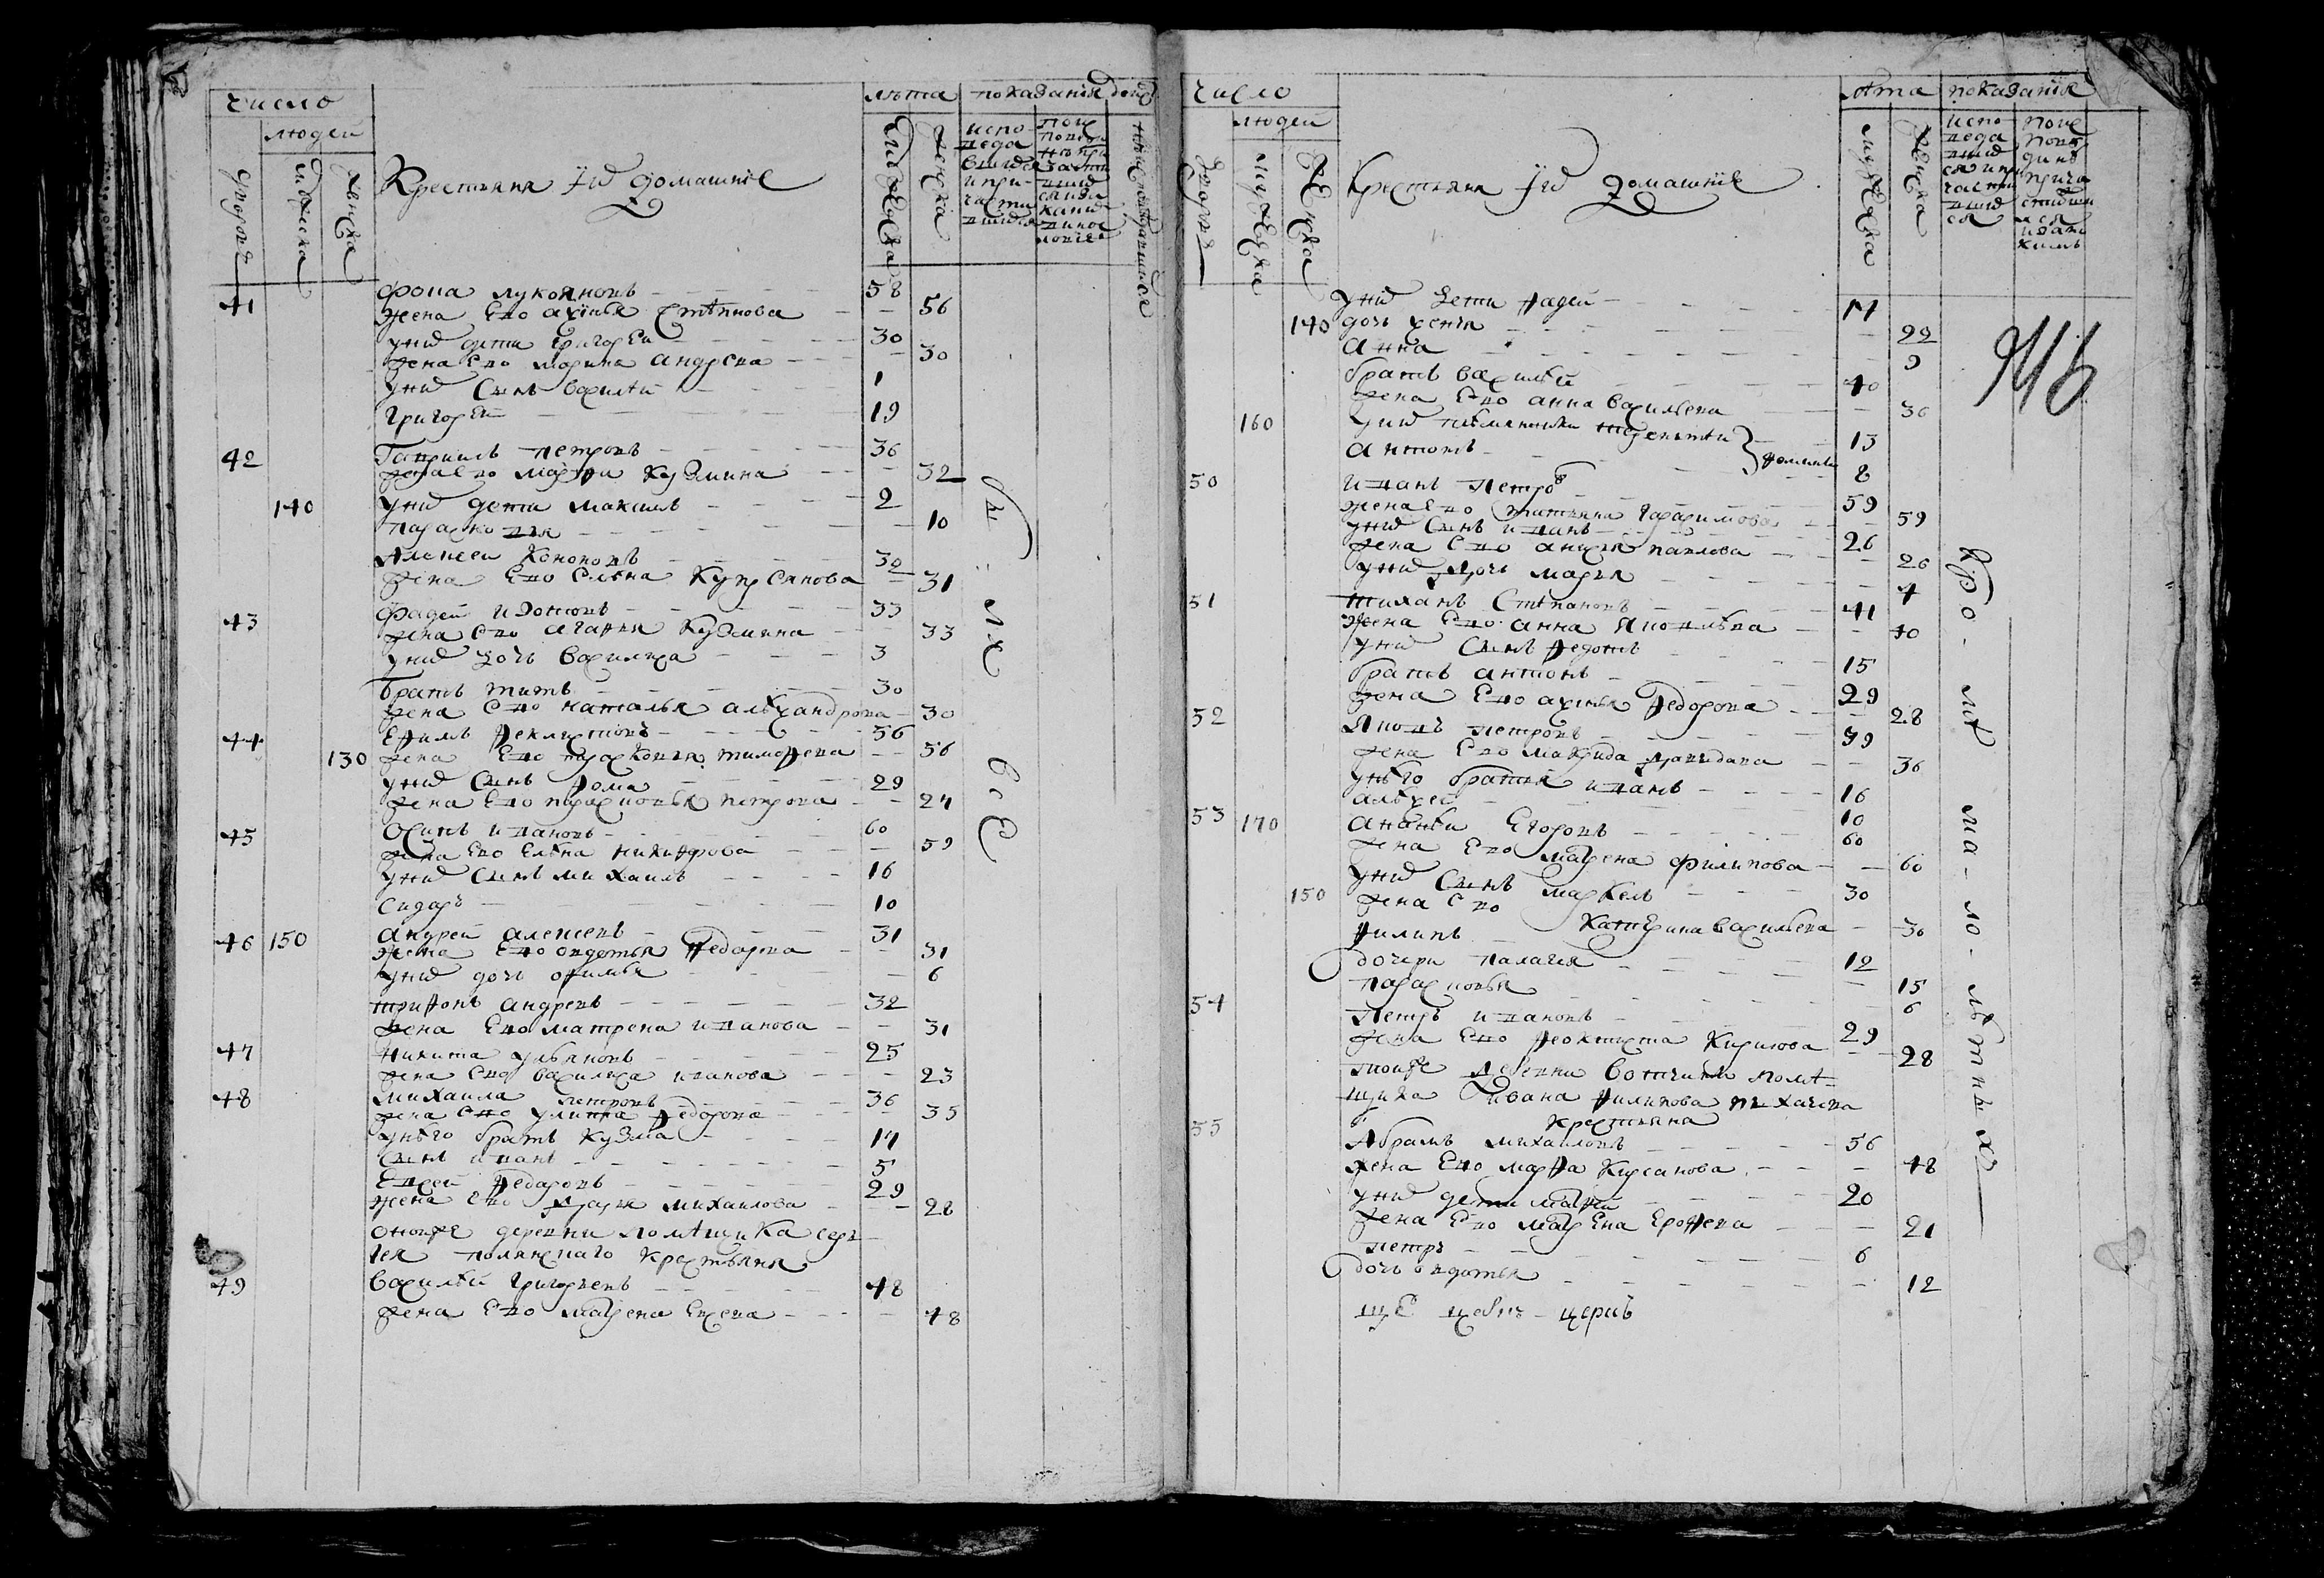 число
людей
дворовъ
мужеска
женска
Крестьяня Ихъ домашние
лета
мужеска
женска
показание
испо
веда
вшихся
и при
части
вшихся
41 Фома Лукояновъ 58
жена ево Аксинья Степанова 56
у них дети Григореи 30
жена ево Марина Андреева 30
у них сынъ Василеи 1
Григореи 19
42 Гаврилъ Петровъ 36
жена ево Марфа Кузмина 32
140 у них дети Максимъ 2
Парасковия 10
Алексеи Кононовъ 30
жена ево Елена Купреянова 31
43 Фадеи Изотовъ 33
жена ево Агафия Кузмина 33
у них дочь Василиса 3
братъ Титъ 30
жена ево Наталья Александрова 30
44 Ефимъ Феклистовъ 56
130 жена ево Парасковья Тимофеева 56
у них сынъ Фома 29
жена ево Парасковья Петрова 24
45 Осипъ Ивановъ 60
жена ево Елена Никифорова 59
у них сынъ Михаилъ 16
Сидаръ 10
46 150 Андреи Алексеевъ 31
жена ево Овдотья Федорова 31
у них дочь Офимья 6
Трифонъ Андреевъ 32
жена ево Матрена Иванова 31
47 Никита Ульяновъ 25
жена ево Василиса Иванова 23
48 Михаила Петровъ 36
жена ево Улияна Федорова 35
у него братъ Кузма 14
сынъ Иванъ 5
Евсеи Федоровъ 29
жена ево Дарья Михаилова 28
оной же деревни помещика Сер
гея Полянскаго крестьяня
49 Василеи Григорьевъ 48
жена ево Матрена Евсева 48
бы
ли
все
число
людей
дворовъ
мужеска
женска
Крестьяня Ихъ домашние
лета
мужеска
женска
показание
испо
веда
вшихся и при
части
вшихся
у них дети Фадеи 14
140 дочь Ксенья 22
Анна 9
братъ Василеи 40
жена ево Анна Васильева 36
160 у них племянники Терентеи 13
Антонъ 8
Фомины
50 Иванъ Петровъ 59
жена ево Татьяна Гарасимова 59
у них сынъ Иванъ 26
жена ево Анисья Павлова 26
у них дочь Марья 4
51 Тиханъ Степановъ 41
жена ево Анна Яковлева 40
у них сынъ Федотъ 15
братъ Антонъ 29
жена ево Аксинья Федорова 28
52 Яковъ Петровъ 39
жена ево Макрида Давидава 36
у него братья Иванъ 16
Алексеи 10
53 170 Ананеи Егоровъ 60
жена ево Матрена Филипова 60
у них сынъ Маркелъ 30
150 жена ево Катерина Васильева 30
Филипъ 12
дочери Палагея 15
Парасковья 6
54 Петръ Ивановъ 29
жена ево Феоктиста Кирилова 28
тои же деревни вотчины поме
щика Ивана Филипова
крестьяна
55 Абрамъ Михаиловъ 56
жена ево Марфа Кирсанова 48
у них дети Матфеи 20
жена ево Матрена Ерофеева 21
Петръ 6
дочь Овдотья 12
кро-ме ма-ло-летных